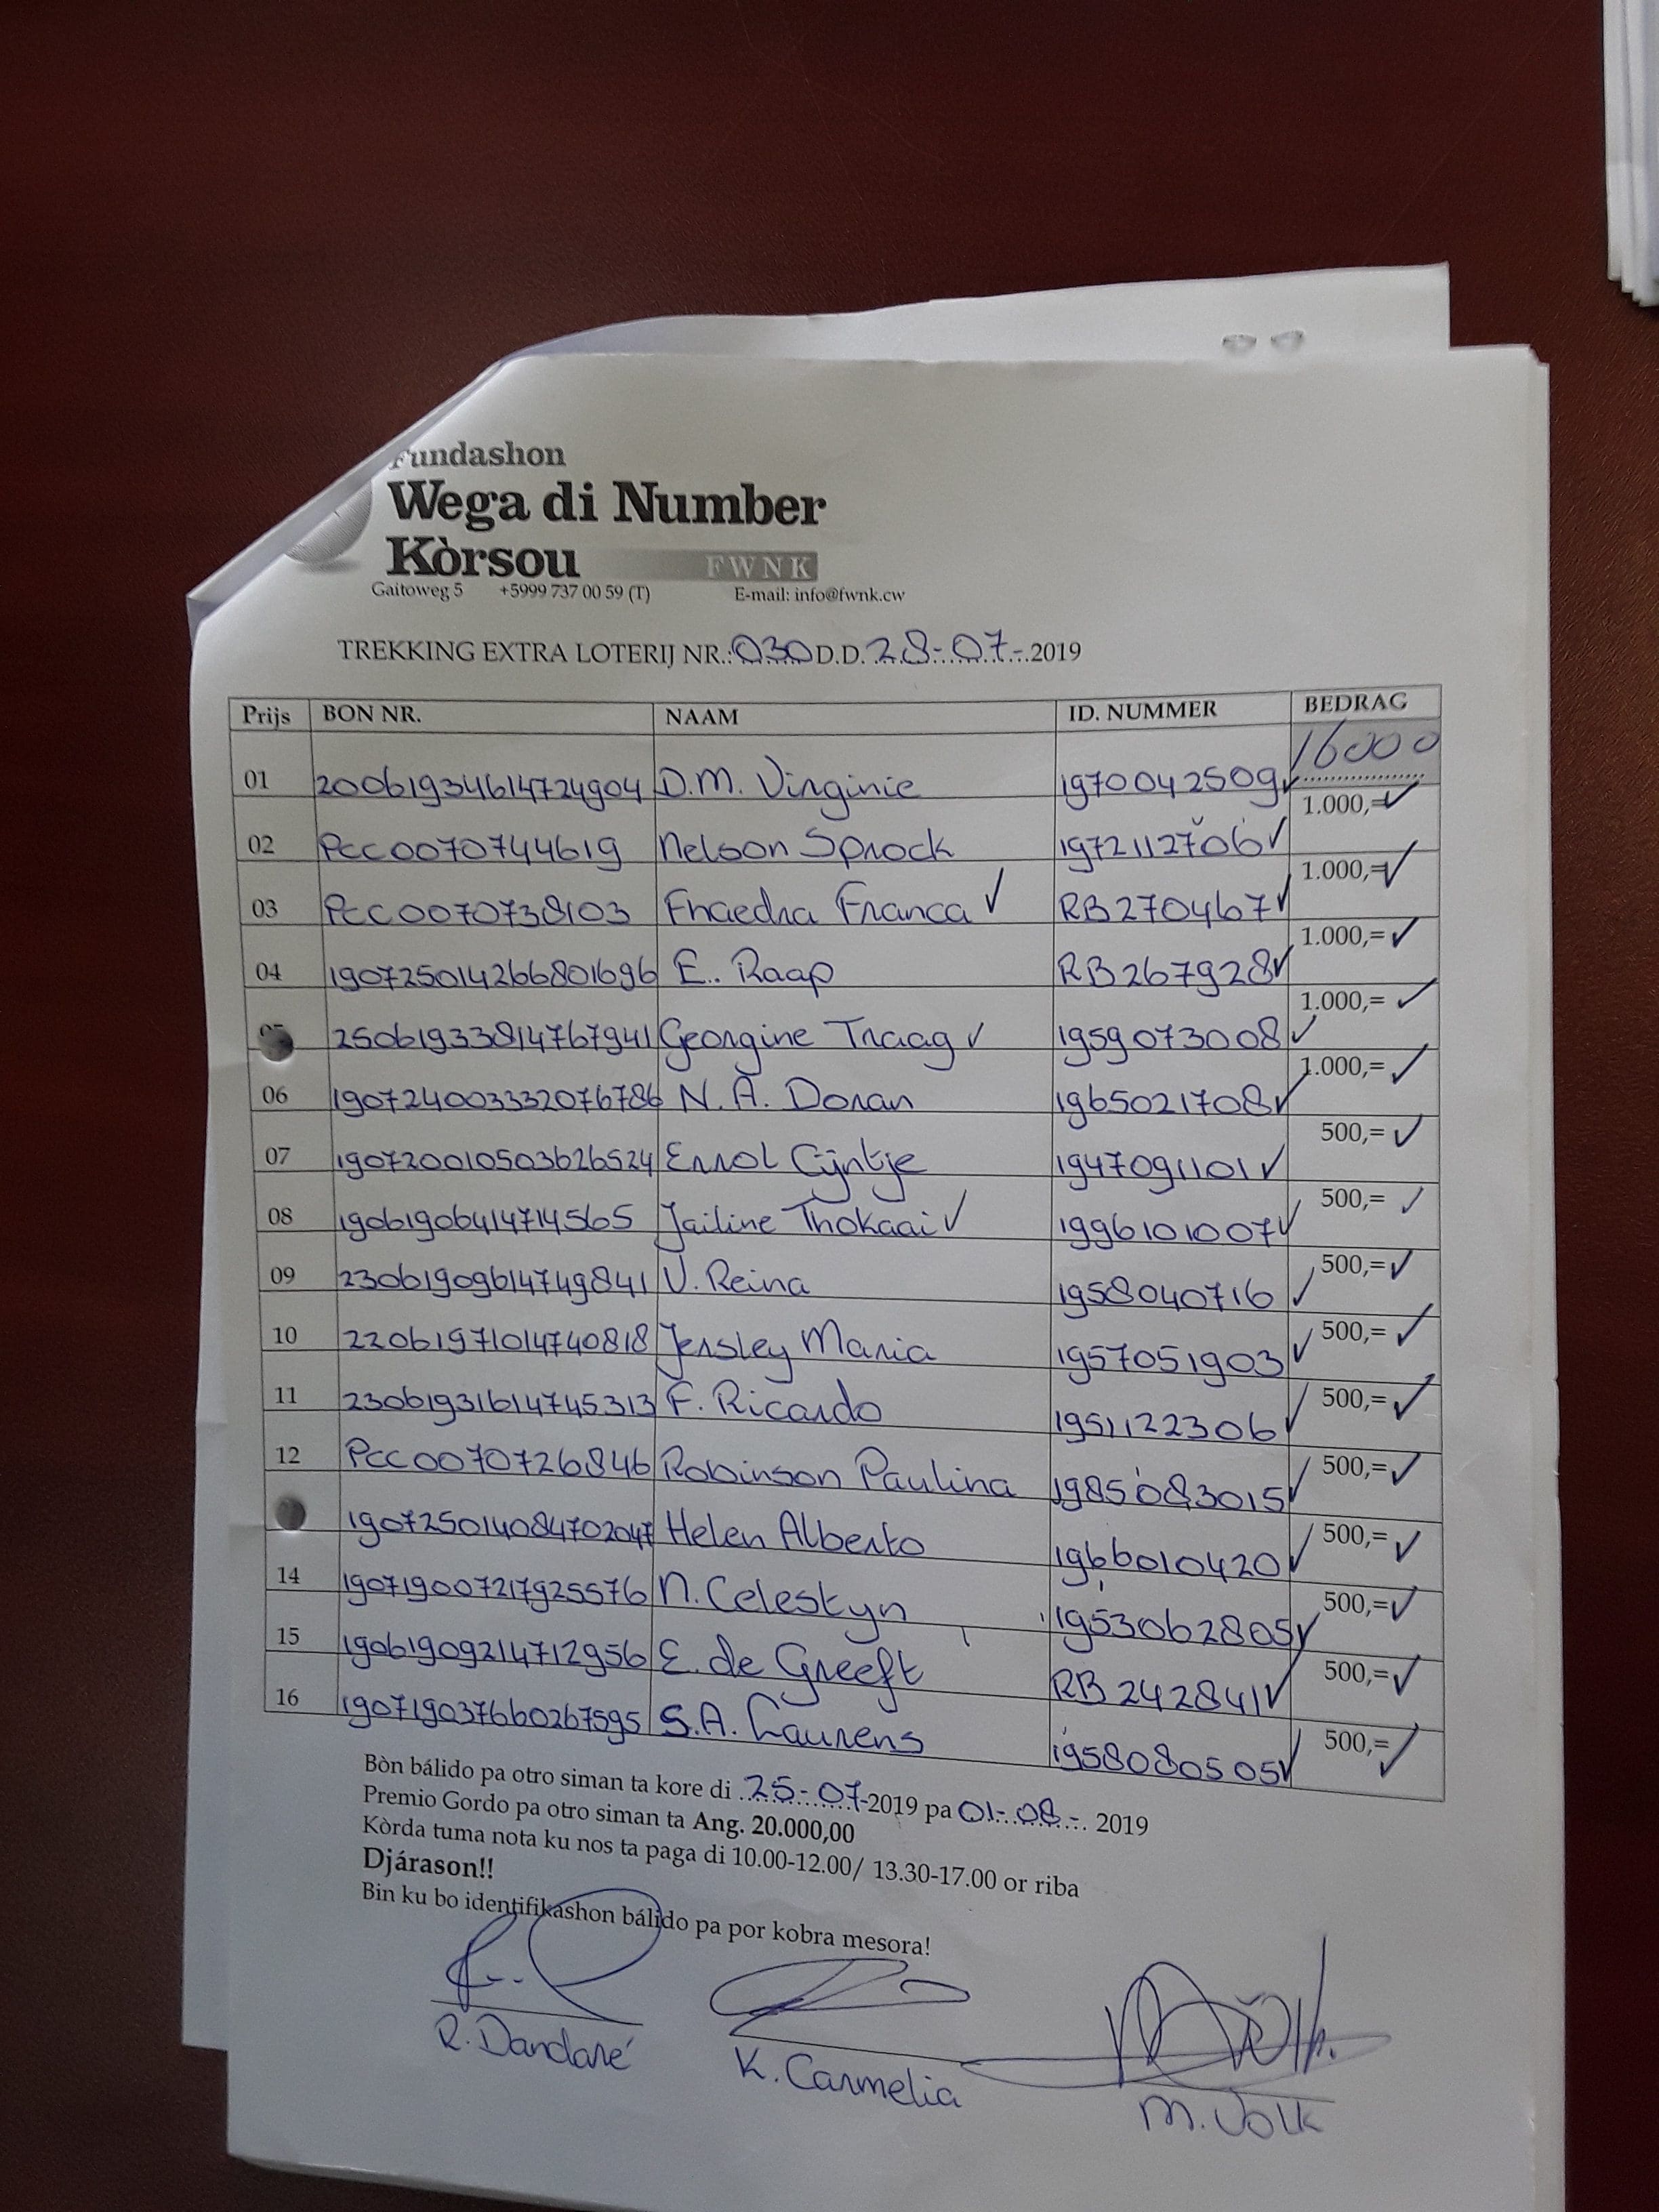 Fundashon
Wega di Number
Kòrsou FWNK
Gaitoweg 5 +5999 737 00 59 (T) E-mail: info@fwnk.cw
TREKKING EXTRA LOTERIJ NR.: 030 D.D. 28-07-2019
Prijs BON NR. NAAM ID. NUMMER BEDRAG
01 20061934614724904 D.M. Virginie 1970042509 16000
02 PCC0070744619 Nelson Sprock 1972112706 1.000,=
03 PCC0070738103 Fhaedra Franca RB270467 1.000,=
04 190725014266801696 E. Raap RB267928 1.000,=
25061933814767941 Georgine Traag 1959073008 1.000,=
06 190724003332076786 N.A. Doran 1965021708 1.000,=
07 190720010503626524 Errol Cijntje 1947091101 500,=
08 19061906414714565 Jailine Thokaai 1996101007 500,=
09 23061909614749841 V. Reina 1958040716 500,=
10 22061971014740818 Jensley Maria 1957051903 500,=
11 23061931614745313 F. Ricardo 1951122306 500,=
12 PCC0070726846 Robinson Paulina 1985083015 500,=
190725014084702047 Helen Alberto 1966010420 500,=
14 190719007217925576 N. Celestyn 1953062805 500,=
15 19061909214712956 E. de Greeft RB242841 500,=
16 1907190376660267595 S.A. Laurens 1958080505 500,=
Bòn bálido pa otro siman ta kore di 25-07-2019 pa 01-08-2019
Premio Gordo pa otro siman ta Ang. 20.000,00
Kòrda tuma nota ku nos ta paga di 10.00-12.00/ 13.30-17.00 or riba
Djárason!!
Bin ku bo identifikashon bálido pa por kobra mesora!
R. Dandaré K. Carmelia M. Volk